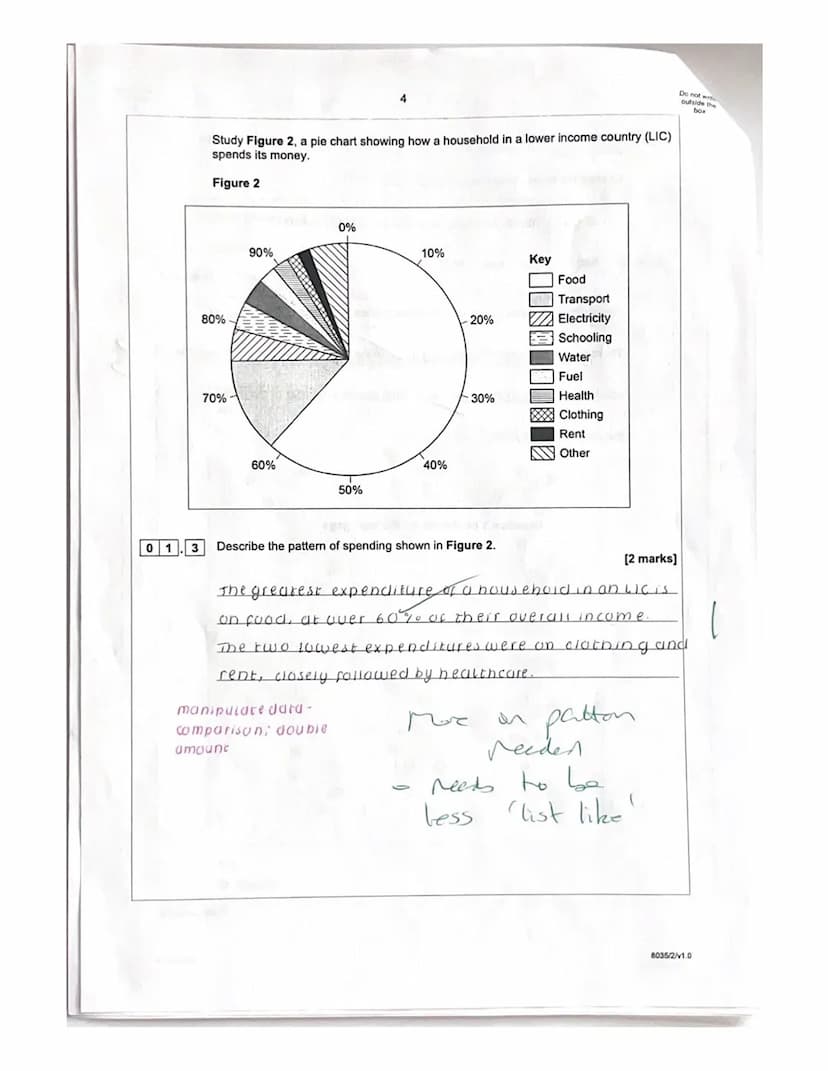 4
Do not write
outside the
box
Study Figure 2, a pie chart showing how a household in a lower income country (LIC)
spends its money.
Figure 2
0%
10%
20%
30%
40%
50%
60%
70%
80%
90%
Key
Food
Transport
Electricity
Schooling
Water
Fuel
Health
Clothing
Rent
Other
0 1 . 3 Describe the pattern of spending shown in Figure 2.
[2 marks]
The greatest expenditure of a household in an LIC is
on food, at over 60% of their overall income.
The two lowest expenditures were on clothing and
rent, closely followed by healthcare.
1
manipulate data -
comparison; double
amount
More on pattern
needed
- needs to be
less 'list like'
8035/2/v1.0